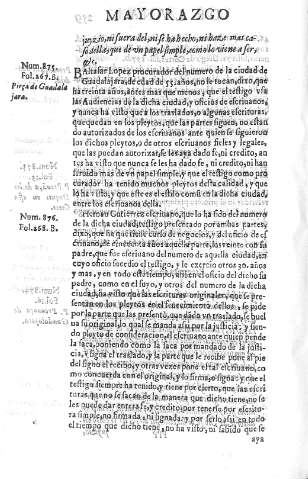 MAYORAZGO
juyzio, ni fuera del, ni se ha hecho, ni haze mas ca-
so dellas, que de vn papel simple, como le viene a ser,
Num. 875.
Fol. 267. B.
Pieça de Guadala
jara.
Baltasar Lopez procurador del numero de la ciudad de
Guadalajara, de edad de 53. años, no le tocan, dixo, que
ha treinta años, antes mas que menos, que el testigo vsa
las Audiencias de la dicha ciudad, y oficios de escriuanos,
y nunca que ha visto que a los traslados, o algunas escrituras,
que quedan en los pleytos, que las partes siguen, no estan-
do autorizados de los escriuanos ante quien se siguieron
los dichos pleytos, o de otros escriuanos fieles y legales,
que las puedan autorizar, se les aya dado fe, ni credito, an-
tes ha visto que nunca se les ha dado fe, ni credito, ni han
seruido mas de vn papel simple, y que el testigo como pro
curador ha tenido muchos pleytos desta calidad, y que
lo ha visto, y que este es el estilo comun en la dicha ciudad,
entre los escriuanos della.
Num. 876.
Fol. 268. B.
Hernan Gutierrez escriuano, que lo ha sido del numero
de la dicha ciudad, testigo presentado por ambas partes,
dixo, que ha que tiene curso de negocios, y del oficio de es-
criuano, de cincuenta años a aquella parte, los veinte con su
padre, que fue escriuano del numero de aquella ciudad, en
cuyo oficio sucedio el testigo, y le exercio otros 30. años
y mas, y en todo este tiempo, assi en el oficio del dicho su
padre, como en el suyo, y otros del numero de la dicha
ciudad, ha visto que las escrituras originales, que se pre-
sentan en los pleytos en el seguimiento dellos,
por la parte que las presentò, quedado vn traslado, se buel
ua su original, lo qual se manda assi por la justicia; y sien-
do pleyto de consideracion, el escriuano ante quien pende
la saca, poniendo como la saca por mandado de la justi-
cia, y signa el traslado, y la parte que le recibe pone al pie
del signo el recibo, y otras vezes pone el tal escriuano, co-
mo concuerda con el original, y lo firma, o signa: y que el
testigo siempre ha tenido, y tiene por cierto, que las escri-
turas que no se sacan de la manera que dicho tiene, no se
les puede dar entera fe, y credito, por tenerse por escritu-
ra simple, no firmada, ni signada, y por ser assi, en todo
el tiempo que dicho tiene, no ha visto, ni sabido que se
878